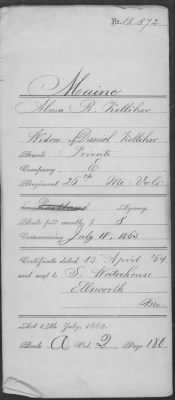 No. 18.872
Maine
Alma R. Kelliher
Widow of Daniel Kelliher
Rank Private
Company E
Regiment 26th Me. Vols.
Portland Agency
Rate per month, $ 8
Commencing July 11, 1863
Certificate dated 13 April '64
and sent to S. Waterhouse
Ellsworth
Me.
Act 14th July, 1862.
Book A Vol. 2 Page 186